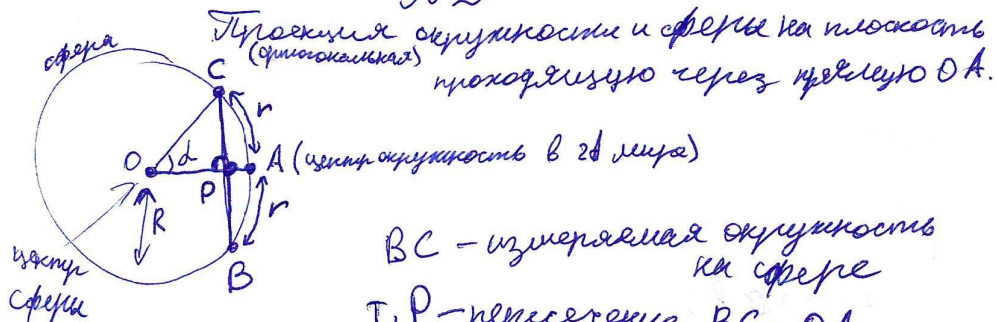 Проекция окружности и сферы на плоскость
(ортогональная)
проходящую через прямую OA.
сфера
C
r
O
α
A (центр окружность в 2d мира)
P
r
R
B
центр
сферы
BC – измеряемая окружность
на сфере
T. P – пересечение BC
OA